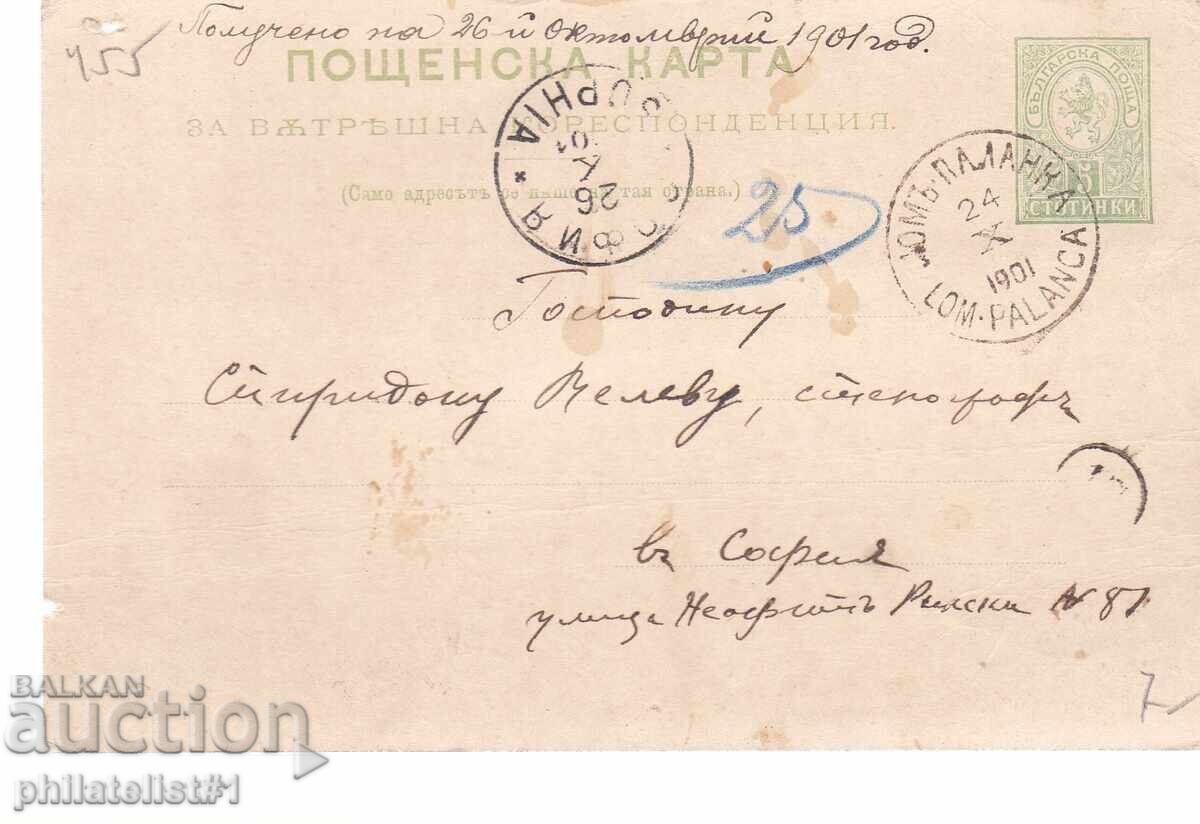 Получено на 26 й Октомврий 1901 год.
455
ПОЩЕНСКА КАРТА
ЗА ВѪТРѢШНА КОРЕСПОНДЕНЦИЯ.
(Само адресътъ се пише на тая страна.)
БЪЛГАРСКА ПОЩА
5
СТОТИНКИ
СОФИЯ
SOPHIA
26
X
01
ЛОМЪ·ПАЛАНКА
24
X
1901
LOM·PALANCA
25
Господину
Спиридону Велеву, стенографъ
въ София
улица Неофитъ Рилски № 87
7
BALKAN
auction
philatelist#1